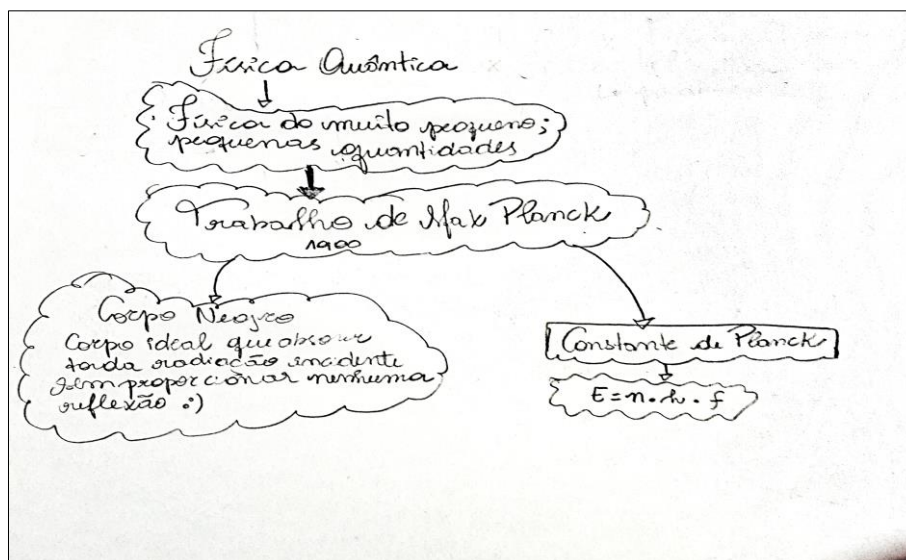 Física Quântica
Física do muito pequeno;
pequenas quantidades
Trabalho de Max Planck
1900
Corpo Negro
Corpo ideal que absorve
toda radiação incidente
sem proporcionar nenhuma
reflexão :)
Constante de Planck
E = n . h . f